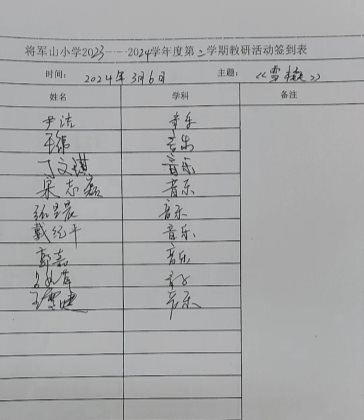 将军山小学2023——2024学年度第二学期教研活动签到表
时间: 2024年3月6日 主题: 《雪橇》
姓名 学科 备注
尹洁 音乐
王伟 音乐
丁文琪 音乐
宋志磊 音乐
张星晨 音乐
戴纪千 音乐
郭嘉 音乐
音乐
王雪婕 音乐